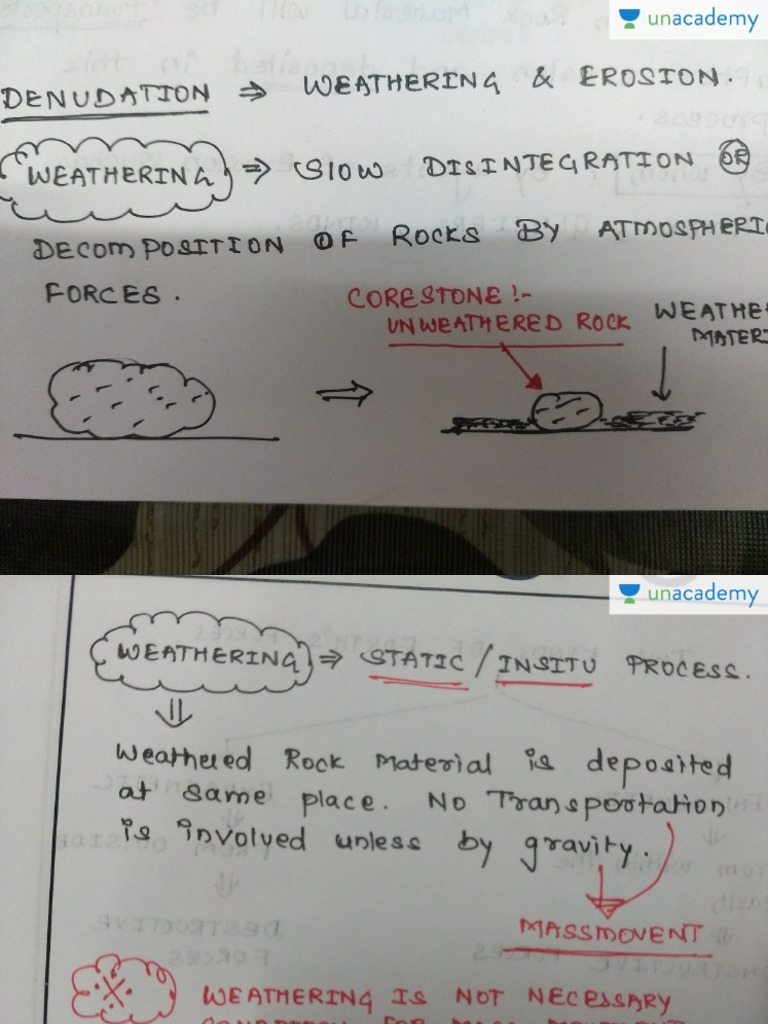 unacademy
DENUDATION ⇒ WEATHERING & EROSION.
WEATHERING ⇒ SlOW DISINTEGRATION OR
DECOMPOSITION OF ROCKS BY ATMOSPHERIC
FORCES.
CORESTONE :-
UNWEATHERED ROCK
WEATHE
MATER
unacademy
WEATHERING ⇒ STATIC / INSITU PROCESS.
Weathered Rock Material is deposited
at same place. No Transportation
is involved unless by gravity.
MASSMOVENT
WEATHERING IS NOT NECESSARY
CONDITION FOR MASS MOVEMENT